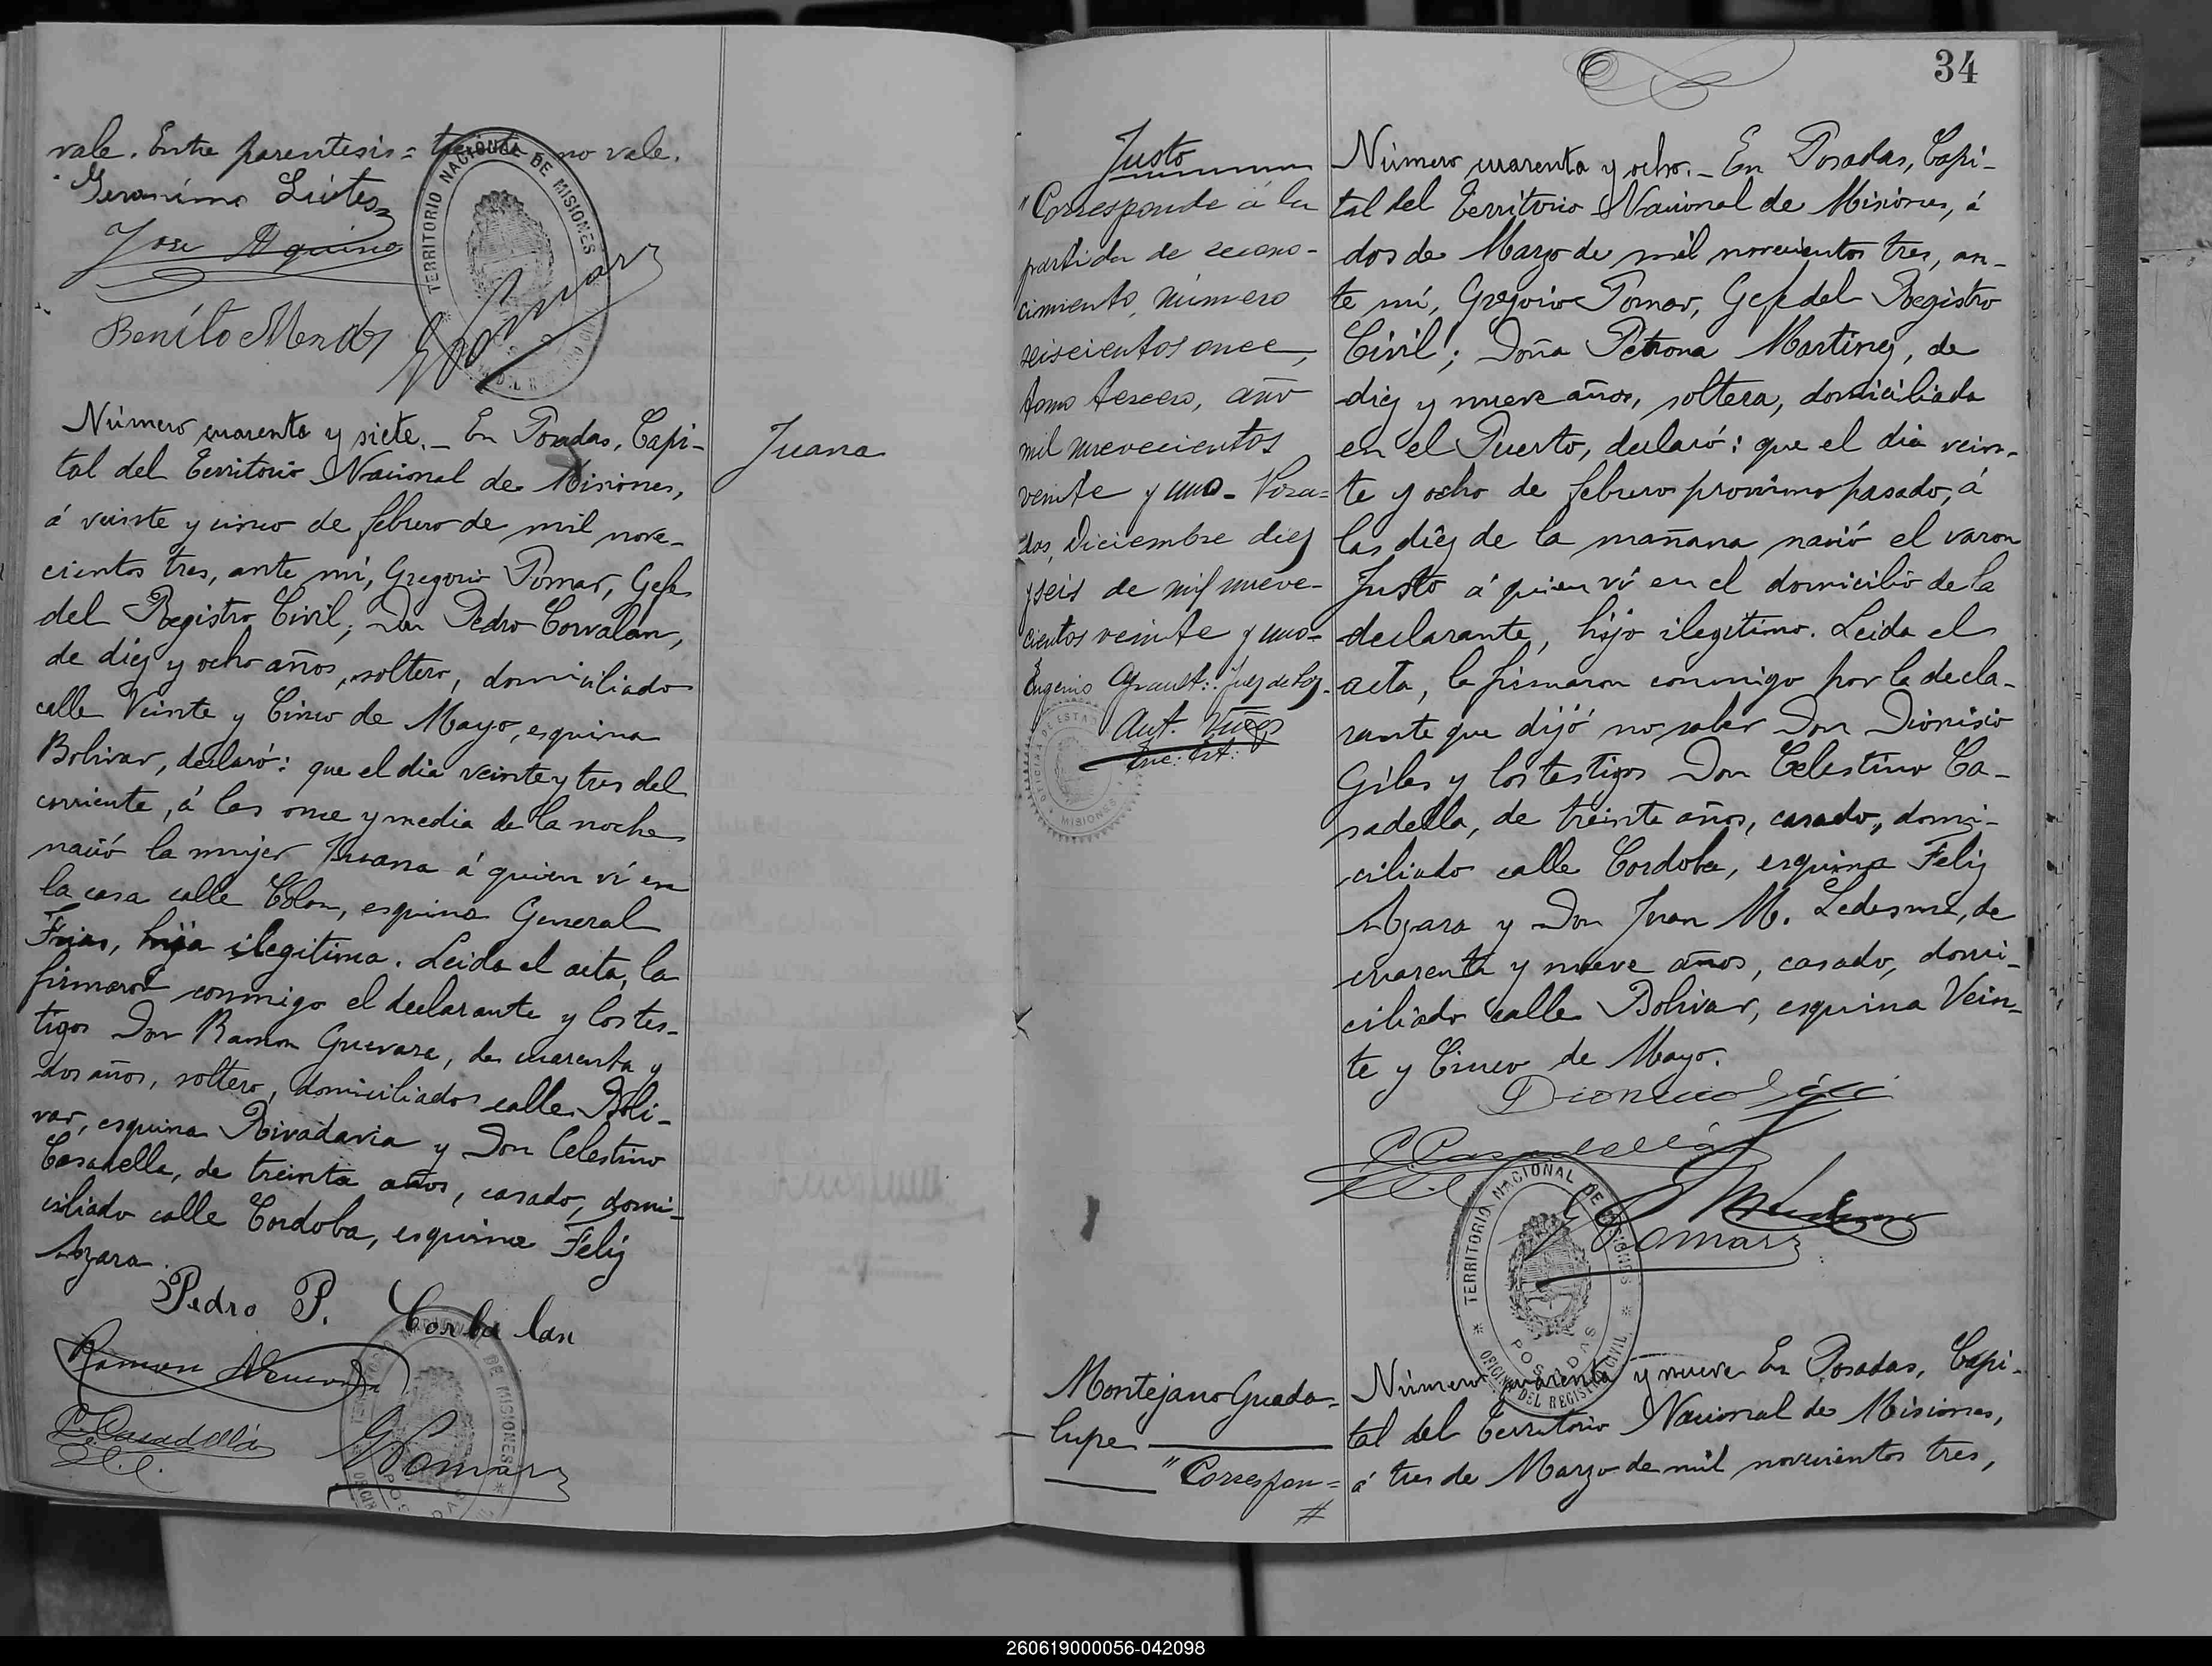 vale. Entre parentesis = treinta no vale.
Geronimo
Jose Aquino
Benito Mendes
TERRITORIO NACIONAL DE MISIONES
GPomar
Número cuarenta y siete. _ En Posadas, Capi-
tal del Territorio Nacional de Misiones,
á veinte y cinco de febrero de mil nove-
cientos tres, ante mí, Gregorio Pomar, Gefe
del Registro Civil; Don Pedro Corvalan,
de diez y ocho años, soltero, domiciliado
calle Veinte y Cinco de Mayo, esquina
Bolivar, declaró: que el dia veinte y tres del
corriente, á las once y media de la noche
nació la mujer Juana á quien ví en
la casa calle Colon, esquina General
Frias, hija ilegitima. Leida el acta, la
firmaron conmigo el declarante y los tes-
tigos Don Ramon Guevara, de cuarenta y
dos años, soltero, domiciliado calle Boli-
var, esquina Rivadavia y Don Celestino
Casadella, de treinta años, casado, domi-
ciliado calle Cordoba, esquina Feliz
Azara.
Pedro P. Corbalan
Ramon
C. Casadellá
GPomar
Juana
34
Justo
"Corresponde á la
partida de recono-
cimiento, número
seiscientos once,
tomo tercero, año
mil novecientos
veinte y uno- Posa-
das, Diciembre diez
y seis de mil nueve-
cientos veinte y uno-
Eugenio : Juez de Paz-
Aut.
Enc: Est:
OFICINA DE ESTA
MISIONES
Número cuarenta y ocho. _ En Posadas, Capi-
tal del Territorio Nacional de Misiones, á
dos de Marzo de mil novecientos tres, an-
te mí, Gregorio Pomar, Gefe del Registro
Civil; Doña Petrona Martinez, de
diez y nueve años, soltera, domiciliada
en el Puerto, declaró: que el dia vein-
te y ocho de febrero proximo pasado, á
las diez de la mañana nació el varon
Justo á quien ví en el domicilio de la
declarante, hijo ilegitimo. Leida el
acta, la firmaron conmigo por la decla-
rante que dijó no saber Don Dionisio
Giles y los testigos Don Celestino Ca-
sadella, de treinta años, casado, domi-
ciliado calle Cordoba, esquina Feliz
Azara y Don Juan M. Ledesma, de
cuarenta y nueve años, casado, domi-
ciliado calle Bolivar, esquina Vein-
te y Cinco de Mayo.
Dionicio
C. Casadellá
GPomar
TERRITORIO NACIONAL DE MISIONES
POSADAS
OFICINA DEL REGISTRO CIVIL
Montejano Guada-
lupe
"Correspon-
#
Número cuarenta y nueve En Posadas, Capi-
tal del Territorio Nacional de Misiones,
á tres de Marzo de mil novecientos tres,
260619000056-042098